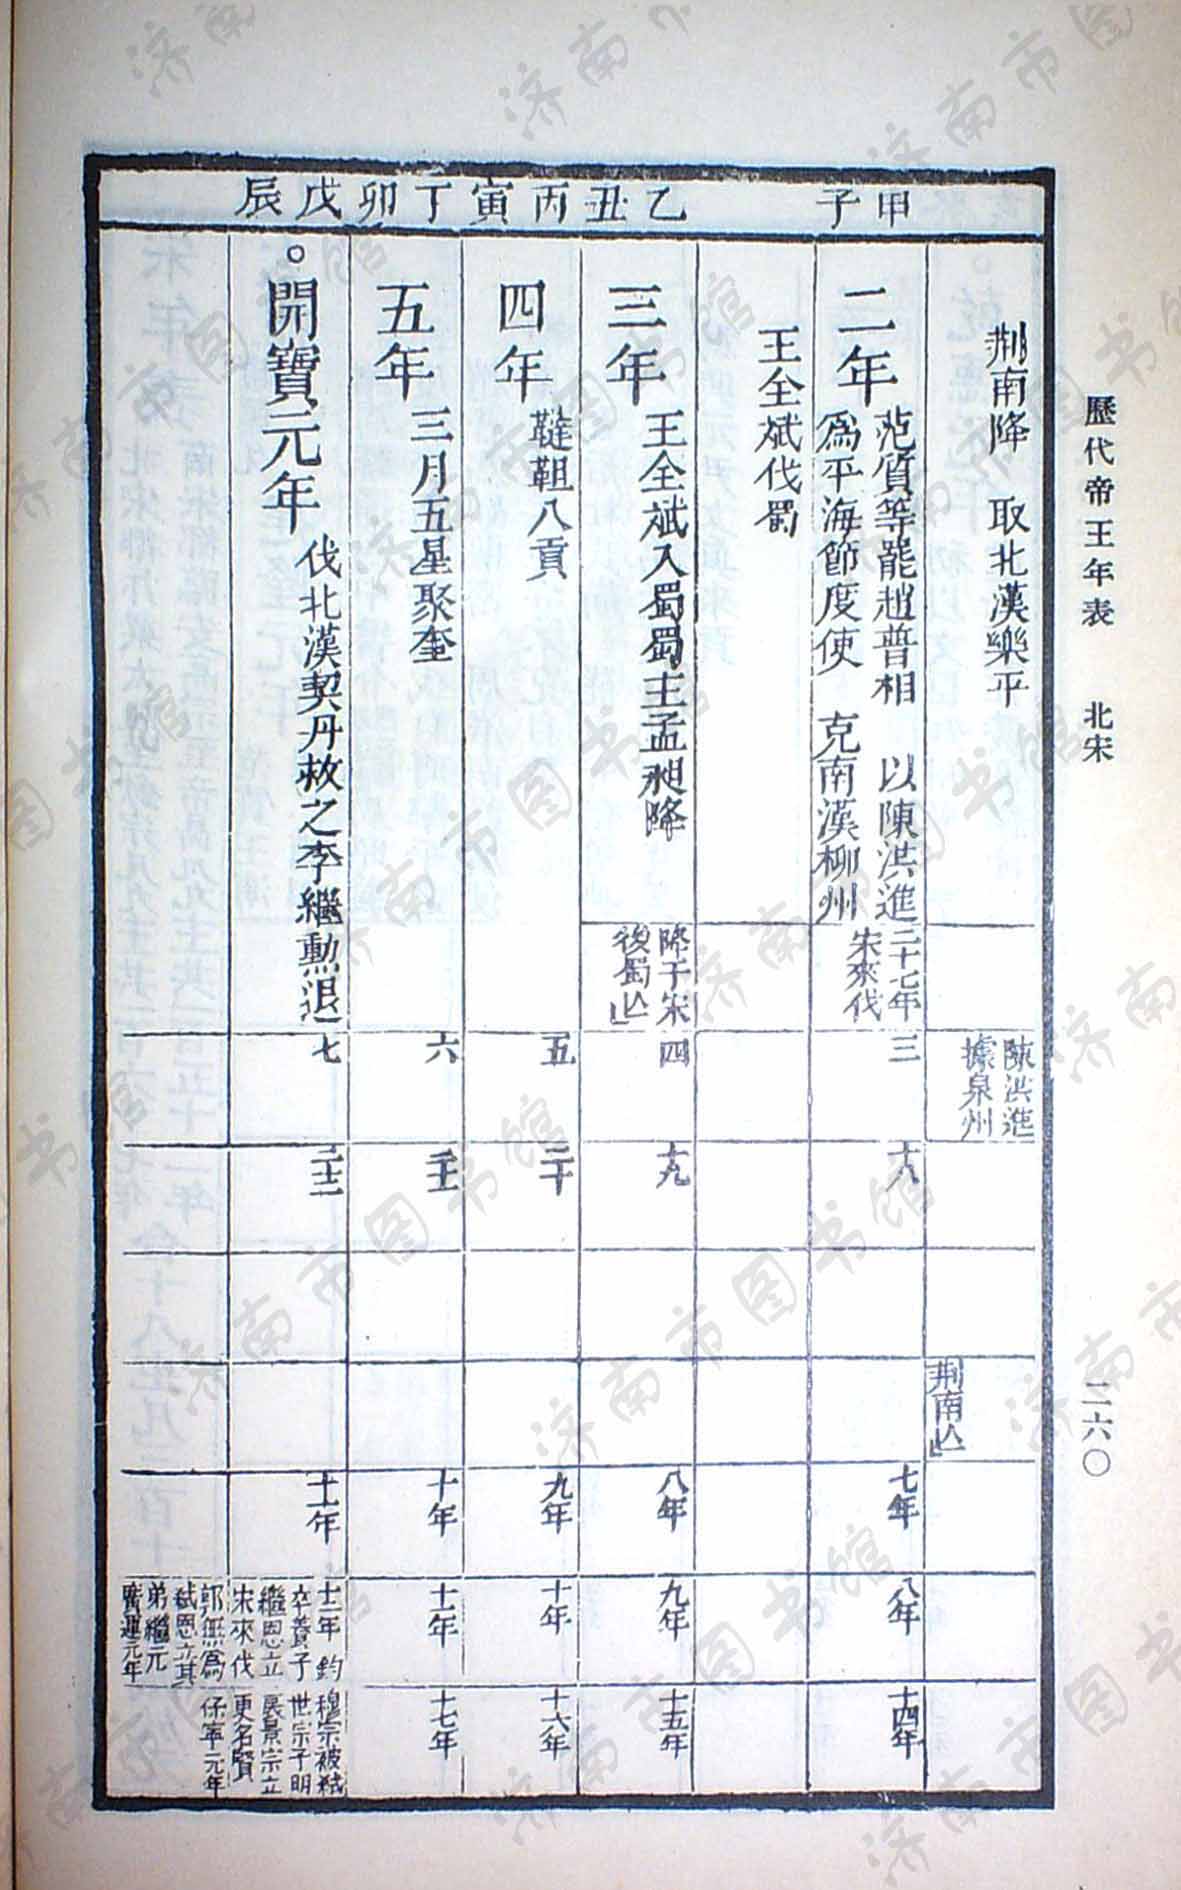 歷代帝王年表 北宋
二六〇
甲子 乙丑 丙寅 丁卯 戊辰
荆南降 取北漢樂平
陳洪進
據泉州
荆南亾
二年
范質等罷趙普相 以陳洪進
爲平海節度使 克南漢郴州
二十七年
宋來伐
三
十八
七年
八年
十四年
王全斌伐蜀
三年
王全斌入蜀蜀主孟昶降
降于宋
後蜀亾
四
十九
八年
九年
十五年
四年
韃靼入貢
五
二十
九年
十年
十六年
五年
三月五星聚奎
六
二十一
十年
十一年
十七年
開寶元年
伐北漢契丹救之李繼勲退
七
二十二
十一年
十二年 鈞
卒養子
繼恩立
宋來伐
郭無爲
弑恩立其
弟繼元
廣運元年
穆宗被弑
世宗子明
扆景宗立
更名賢
保寧元年
济南市图书馆